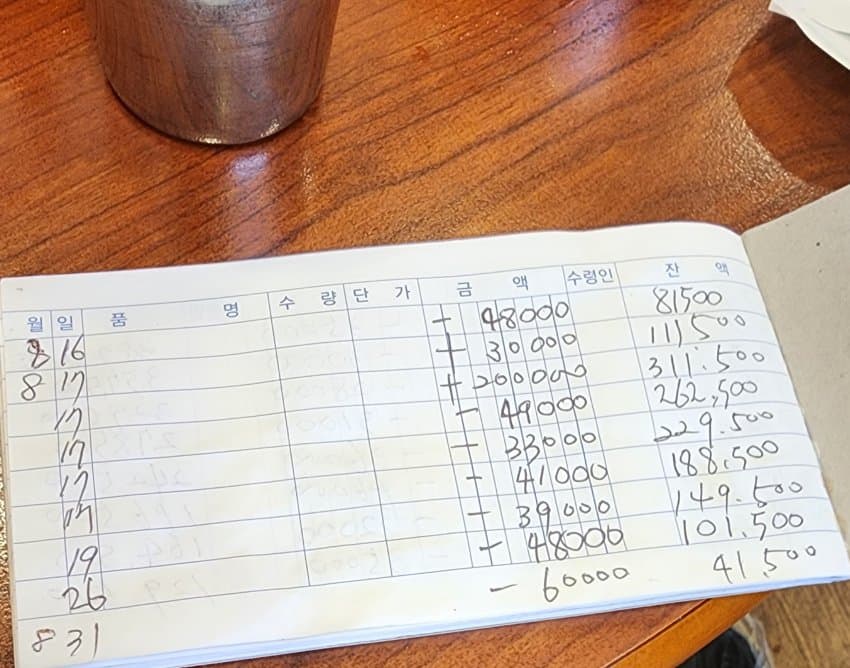 월 일 품 명 수 량 단 가 금 액 수령인 잔 액
8 16 - 48000 81500
8 17 + 30000 111500
17 + 200000 311.500
17 - 49000 262,500
17 - 33000 229.500
17 - 41000 188,500
19 - 39,000 149.500
26 - 48000 101.500
8 31 - 60000 41,500